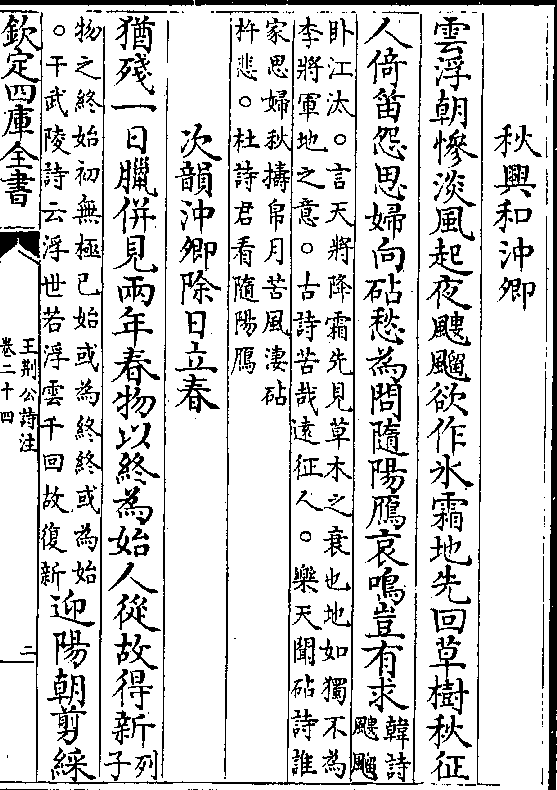 秋興和沖卿
雲浮朝慘淡風起夜颼飀欲作氷霜地先回草樹秋征
人倚笛怨思婦向砧愁為問隨陽鴈哀鳴豈有求
韓詩
颼飀
卧江汰。言天將降霜先見草木之衰也地如獨不為
李將軍地之意。古詩苦哉遠征人。樂天聞砧詩誰
家思婦秋擣帛月苦風淒砧
杵悲。杜詩君看隨陽鴈
次韻沖卿除日立春
猶殘一日臘併見兩年春物以終為始人從故得新
列
子
物之終始初無極已始或為終終或為始
。干武陵詩云浮世若浮雲千回故復新
迎陽朝剪綵
欽定四庫全書
王荆公詩注
卷二十四
二